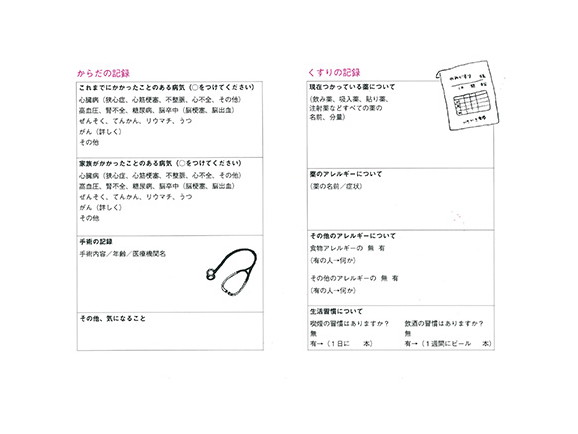 からだの記録
これまでにかかったことのある病気（○をつけてください）
心臓病（狭心症、心筋梗塞、不整脈、心不全、その他）
高血圧、腎不全、糖尿病、脳卒中（脳梗塞、脳出血）
ぜんそく、てんかん、リウマチ、うつ
がん（詳しく）
その他
家族がかかったことのある病気（○をつけてください）
心臓病（狭心症、心筋梗塞、不整脈、心不全、その他）
高血圧、腎不全、糖尿病、脳卒中（脳梗塞、脳出血）
ぜんそく、てんかん、リウマチ、うつ
がん（詳しく）
その他
手術の記録
手術内容／年齢／医療機関名
その他、気になること
くすりの記録
現在つかっている薬について
（飲み薬、吸入薬、貼り薬、
注射薬などすべての薬の
名前、分量）
薬のアレルギーについて
（薬の名前／症状）
その他のアレルギーについて
食物アレルギーの 無 有
（有の人→何か）
その他のアレルギーの 無 有
（有の人→何か）
生活習慣について
喫煙の習慣はありますか？ 飲酒の習慣はありますか？
無 無
有→（１日に 本） 有→（１週間にビール 本）